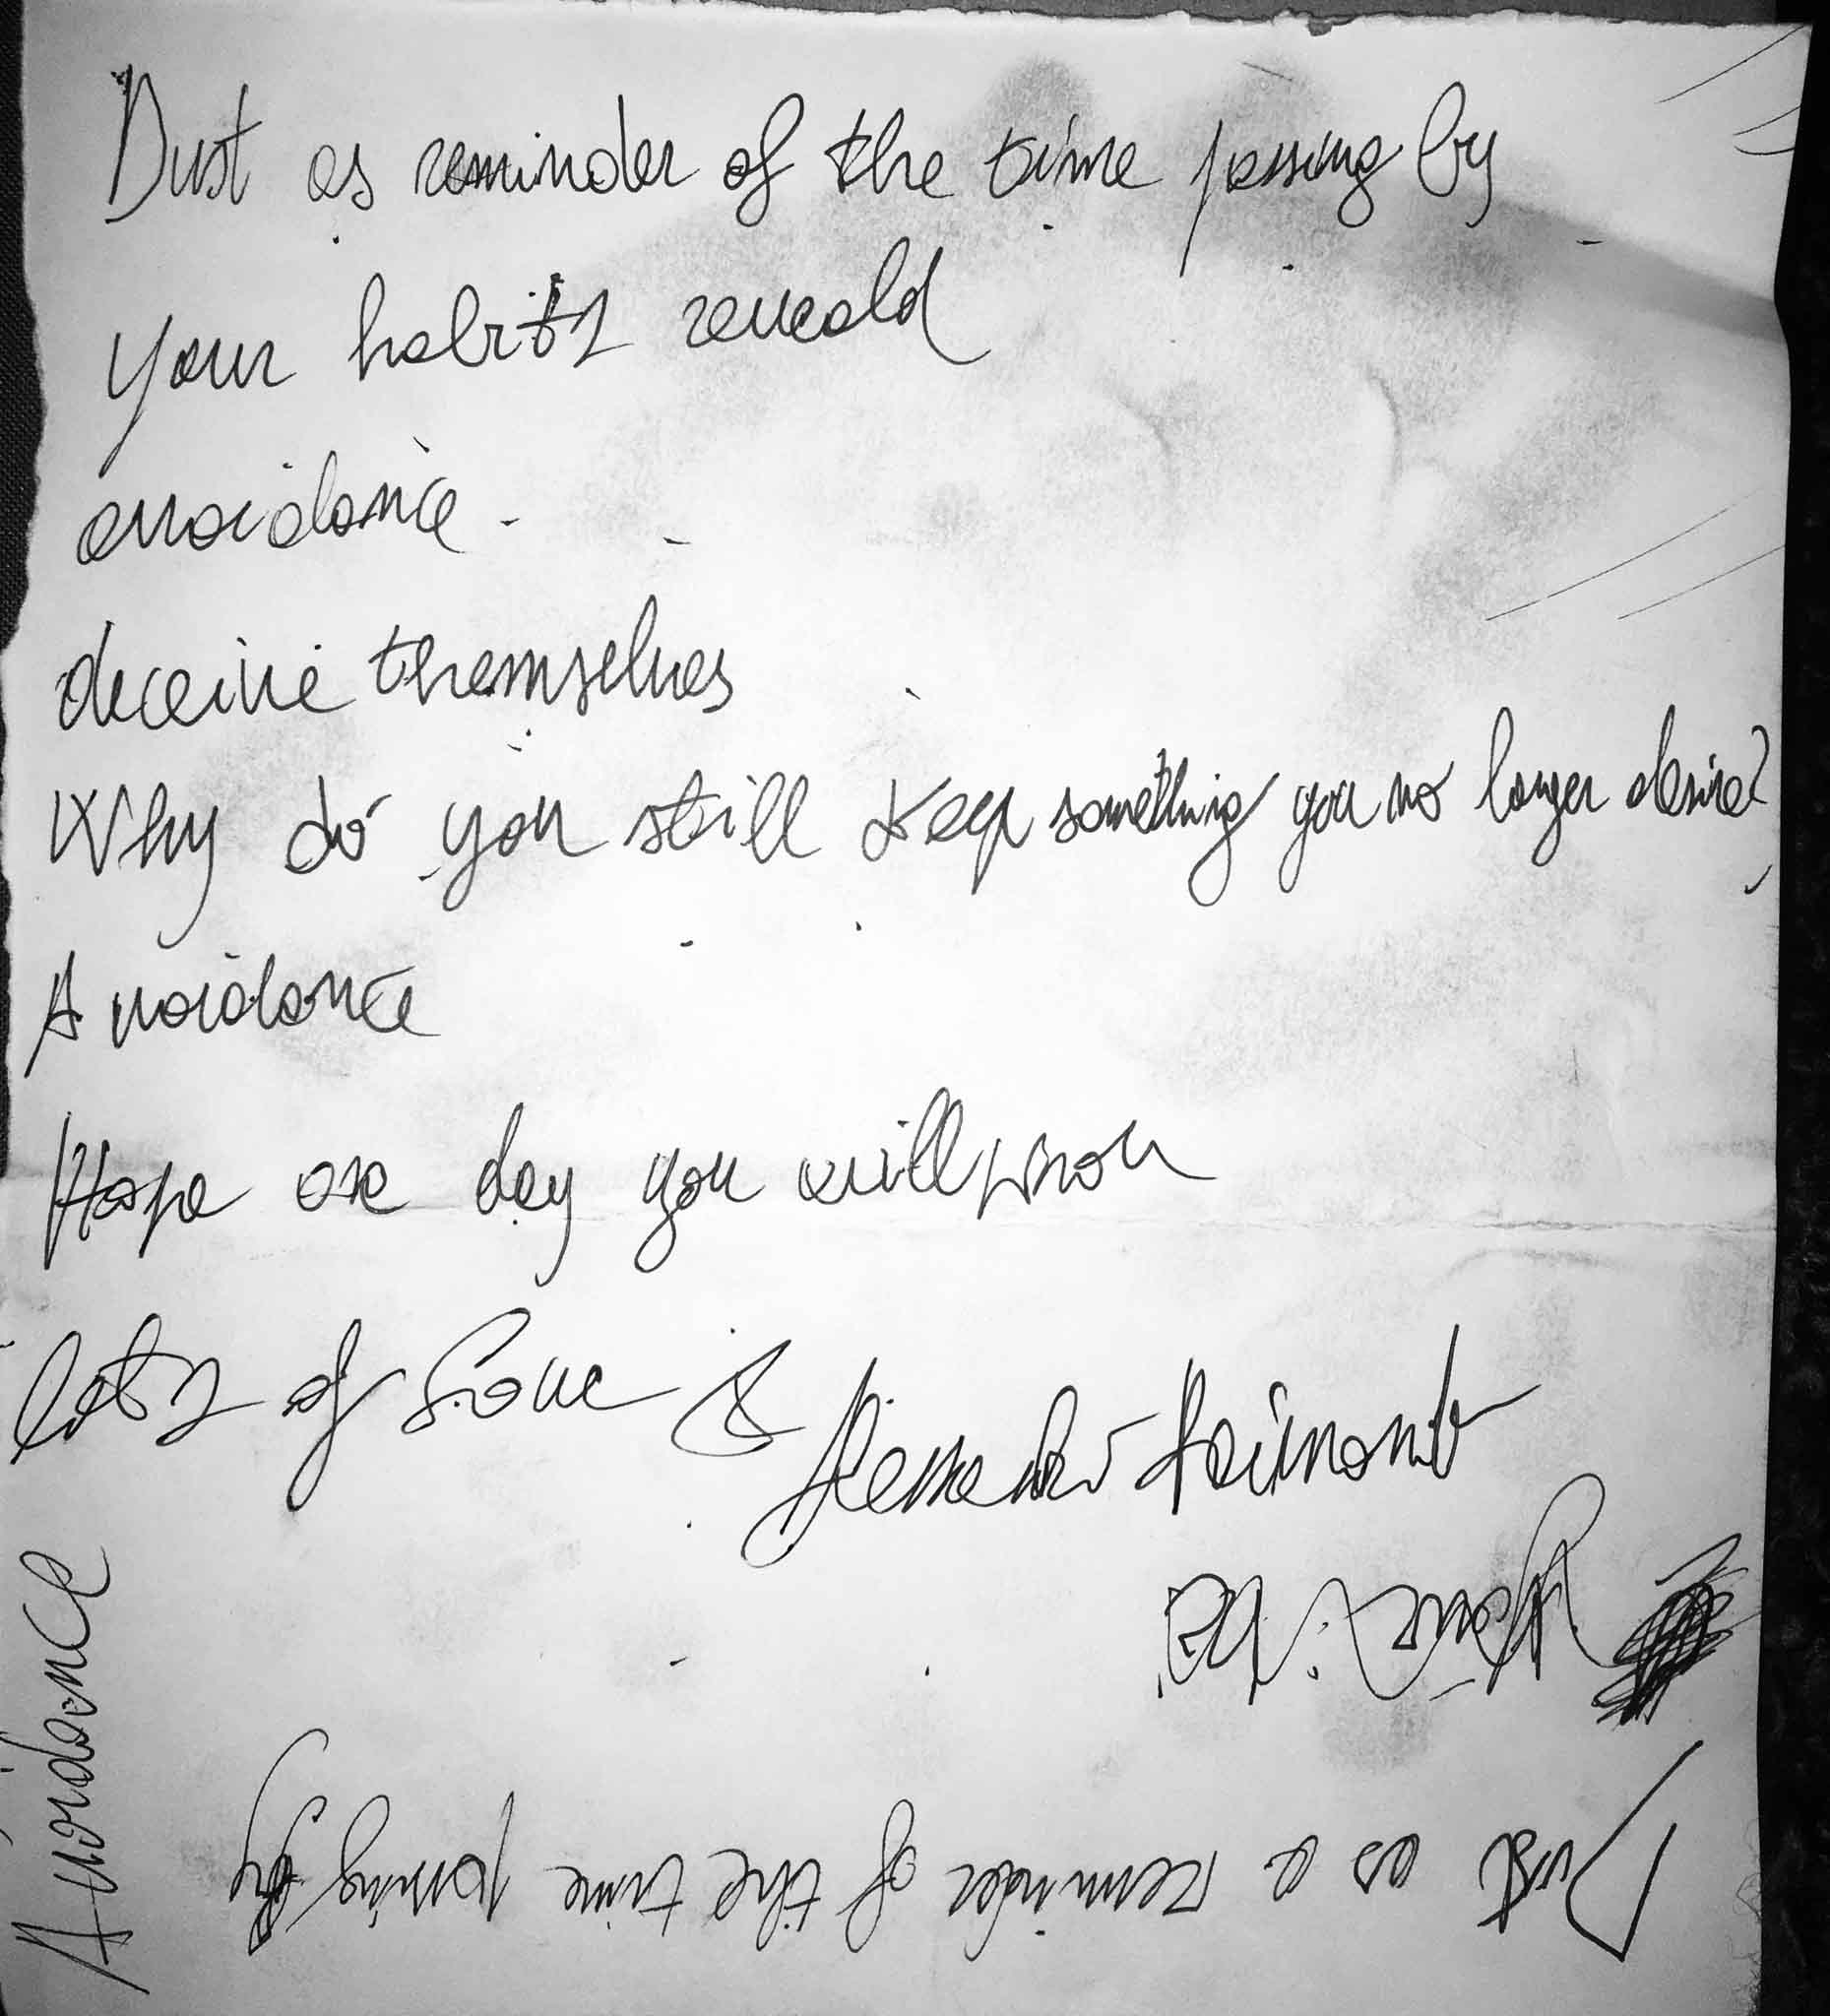 Dust as reminder of the time passing by
Your habits reveald
avoidance.
deceive themselves
Why do you still keep something you no longer desire?
Avoidance
Hope one day you will
lots of love &
Avoidance
Dust as a reminder of the time passing by